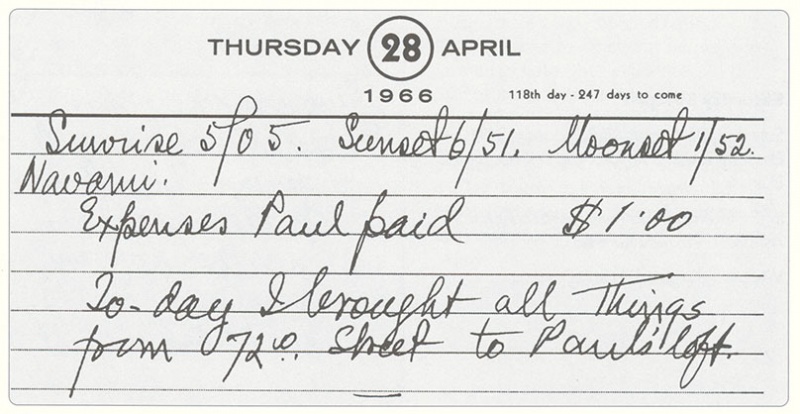 THURSDAY 28 APRIL
1966 118th day - 247 days to come
Sunrise 5/05. Sunset 6/51. Moonset 1/52.
Navami.
Expenses Paul paid $1.00
To-day I brought all Things
from 72nd. Street to Paul's loft.